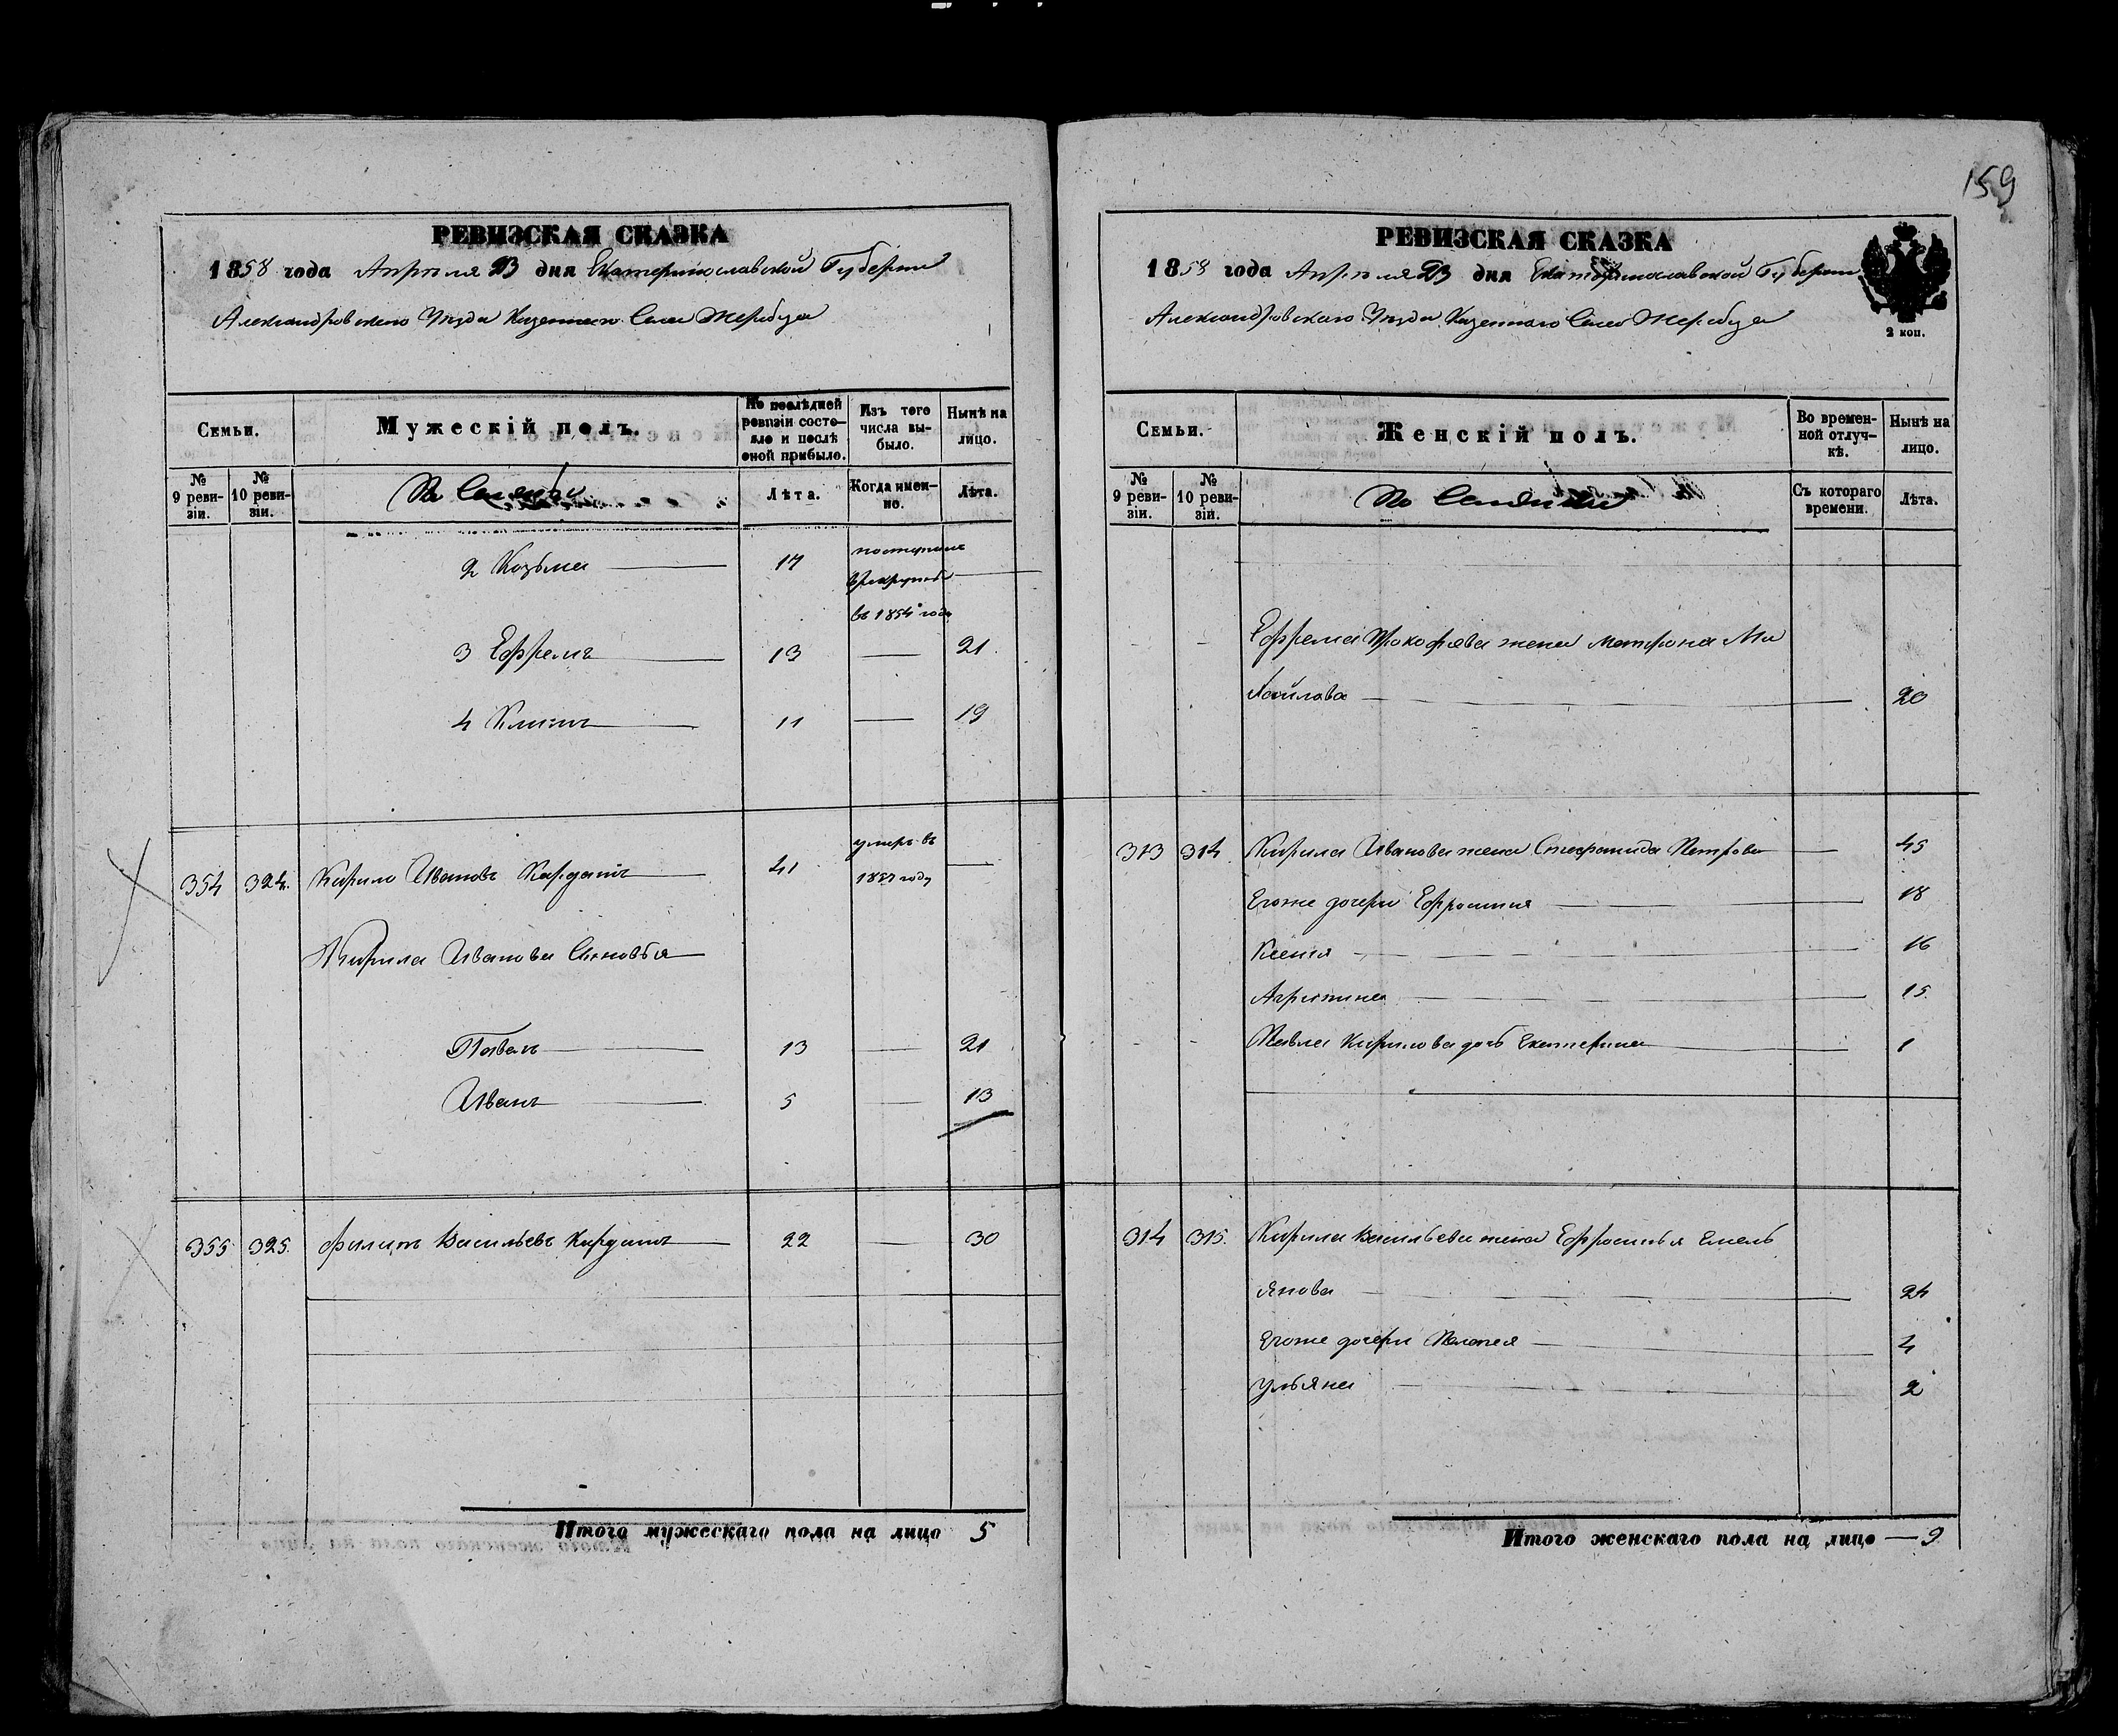 159
РЕВИЗСКАЯ СКАЗКА
1858 года Апреля 23 дня Екатеринославской Губернии
Александровского Уезда Казенного Села Жеребца
Семьи.
Мужескій полъ.
По послѣдней ревизіи состояло и послѣ оной прибыло.
Изъ того числа выбыло.
Нынѣ на лицо.
№ 9 ревизіи.
№ 10 ревизіи.
Лѣта.
Когда именно.
Лѣта.
2 Козьма 17 поступилъ
в рекруты
въ 1854 году
3 Ефремъ 13 21
4 Климъ 11 19
354 324. Кирило Ивановъ 41 умеръ въ
1857 году
Кирила Иванова Сыновья
Павелъ 13 21
Иванъ 5 13
355 325. Филипъ Васильевъ 22 30
Итого мужескаго пола на лицо 5
РЕВИЗСКАЯ СКАЗКА
1858 года Апреля 23 дня Екатеринославской Губернии
Александровскаго Уезда Казенного Села Жеребца
2 коп.
Семьи.
Женскій полъ.
Во временной отлучкѣ.
Нынѣ на лицо.
№ 9 ревизіи.
№ 10 ревизіи.
Съ котораго времени.
Лѣта.
Ефрема Прокофьева жена Матрона Ми
хайлова 20
313 314 Кирила Иванова жена Стефанида Петрова 45
Егоже дочери Ефросиния 18
Ксения 16
Агрипина 15
Павла Кирилова дочь Екатерина 1
314 315. Кирила Васильева жена Ефросинья Емель
янова 24
Егоже дочери Пелагея 4
Ульяна 2
Итого женскаго пола на лицо 9